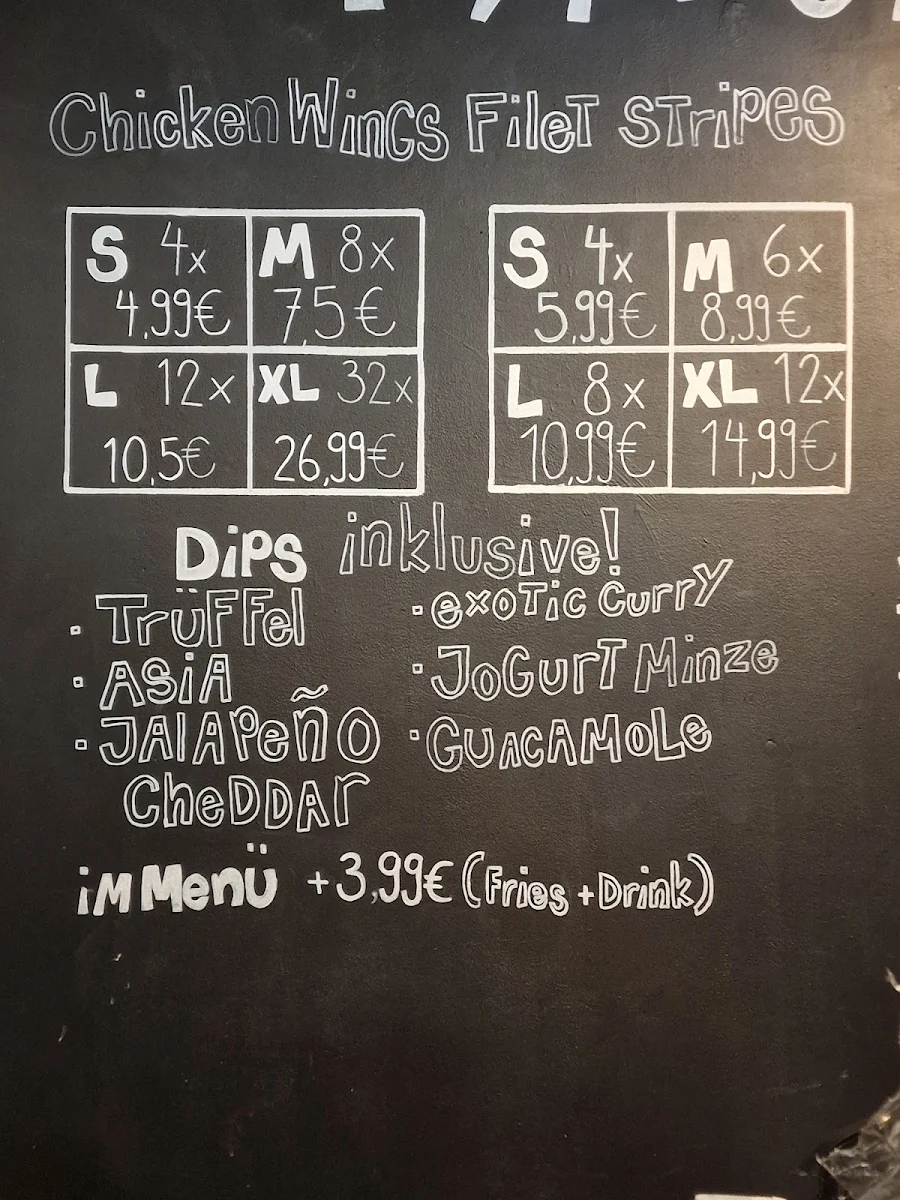 Chicken Wings Filet Stripes
S 4x M 8x
4,99€ 7,5€
L 12x XL 32x
10,5€ 26,99€
S 4x M 6x
5,99€ 8,99€
L 8x XL 12x
10,99€ 14,99€
Dips inklusive!
· Trüffel
· Asia
· Jalapeño
Cheddar
· exotic Curry
· Jogurt Minze
· Guacamole
im Menü +3,99€ (Fries + Drink)